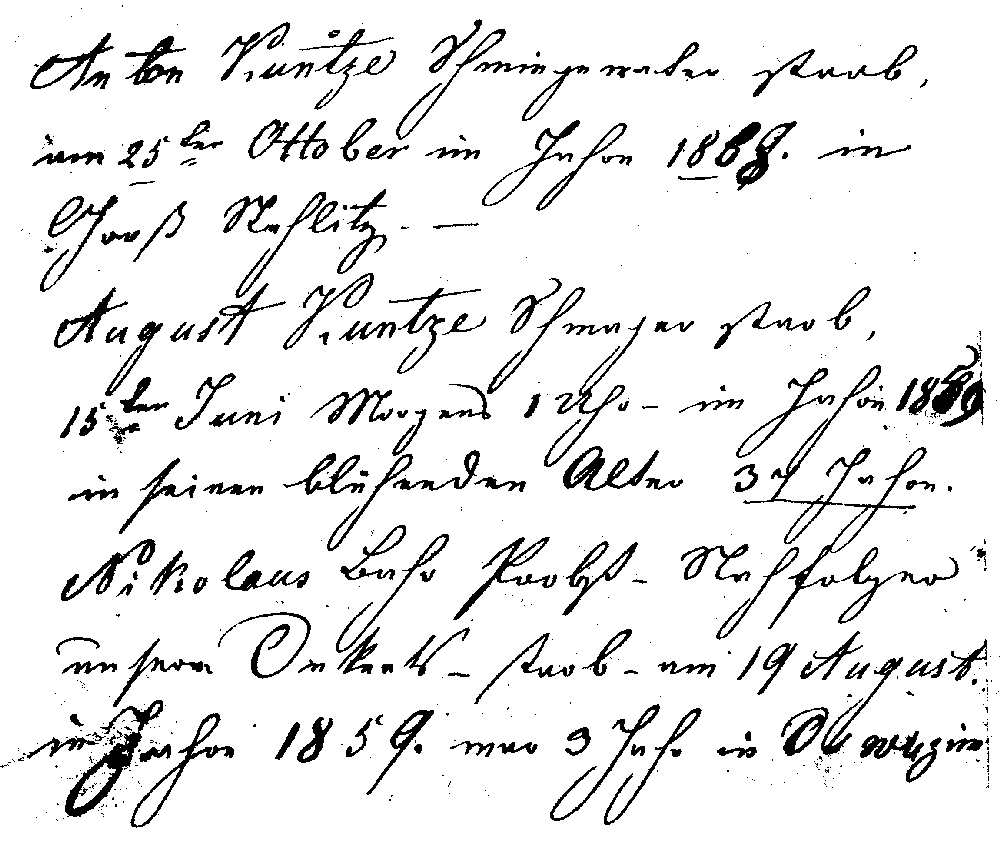 Anton Kuntze Schwiegervater starb,
am 25ten Oktober im Jahre 1868. in
Groß Nehlitz. —
August Kuntze Schwager starb,
15ten Juni Morgens 1 Uhr – im Jahre 1869
in seinen blühenden Alter 37 Jahre.
Nikolaus Bahr Probst – Nachfolger
unsern Onkels – starb – am 19 August.
im Jahre 1859. war 3 Jahr in